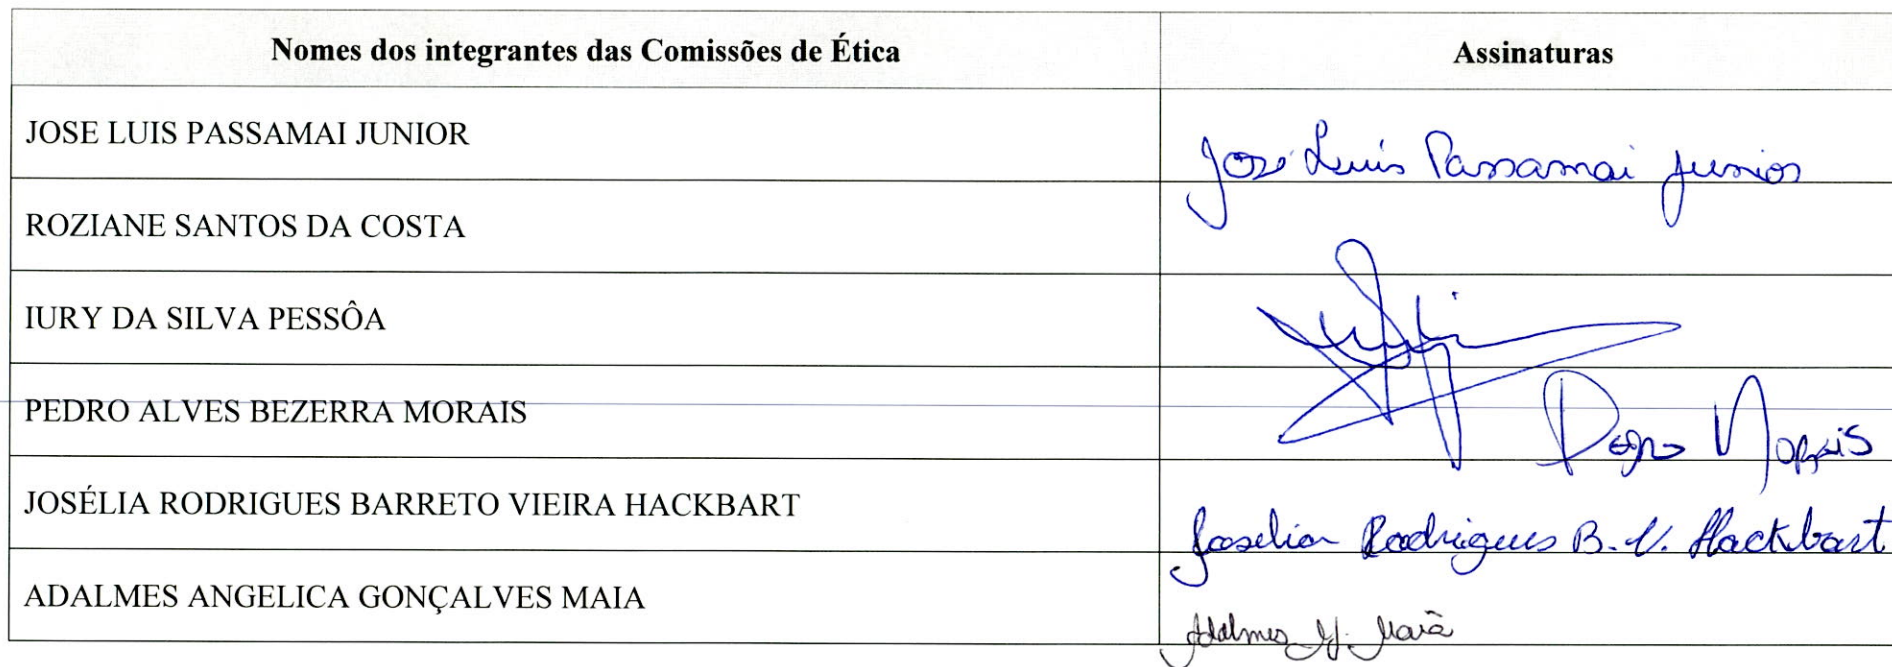 Nomes dos integrantes das Comissões de Ética Assinaturas
JOSE LUIS PASSAMAI JUNIOR José Luís Passamai Junior
ROZIANE SANTOS DA COSTA
IURY DA SILVA PESSÔA
PEDRO ALVES BEZERRA MORAIS Pedro Morais
JOSÉLIA RODRIGUES BARRETO VIEIRA HACKBART Joselia Rodrigues B. V. Hackbart
ADALMES ANGELICA GONÇALVES MAIA Adalmes G. Maia